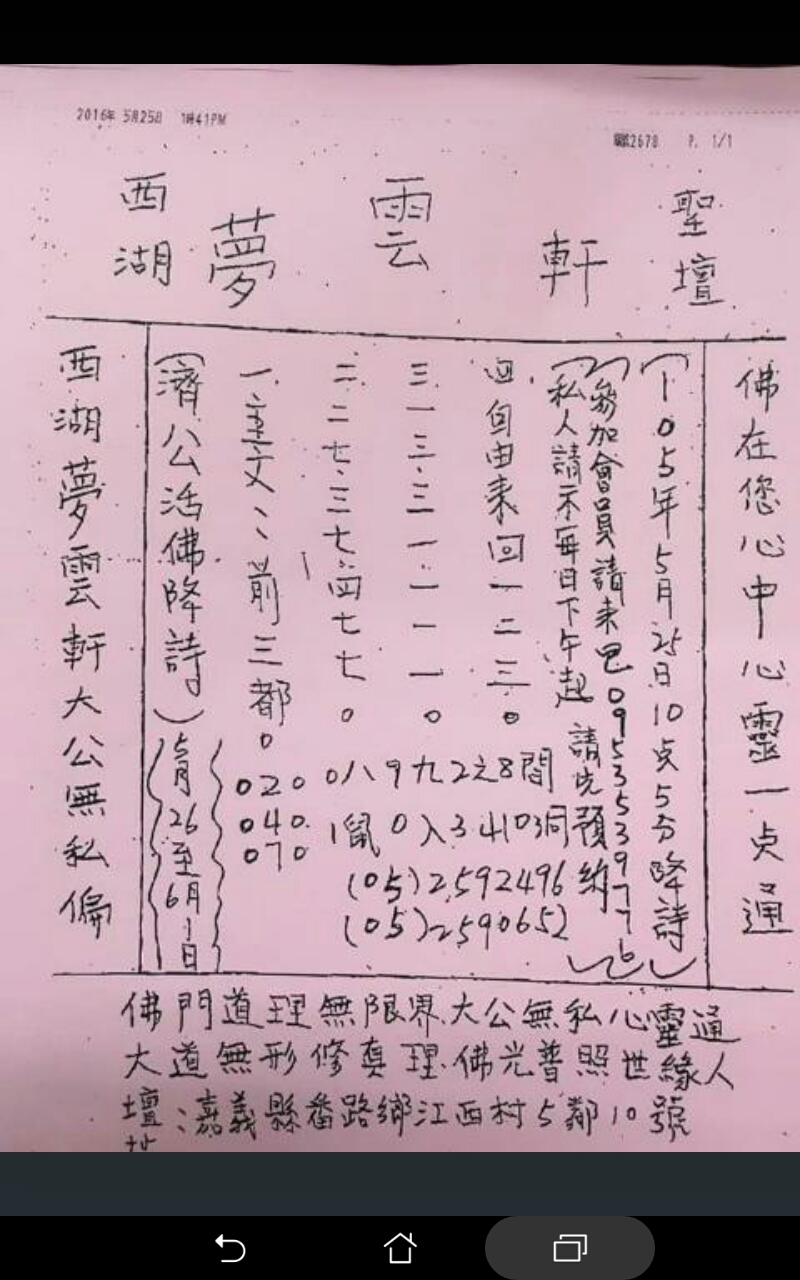 2016年 5月25日 1時41PM
2678 P. 1/1
西湖 夢雲軒 聖壇
佛在您心中心靈一点通
(105年5月25日10点5分降詩)
(參加會員請來電0953539776)
私人請示每日下午起 請先預約
四.自由來回一二三0
三.一三.三一一一一0
二.二七.三七.四七七0
一.重文、前三都0
020 0八9九2之8間
040. 1鼠0入3 4103洞
070
(05)2592496
(05)2590652
(濟公活佛降詩)
5月26至6月1日
西湖夢雲軒大公無私偏
佛門道理無限界.大公無私心靈通
大道無形修真理.佛光普照世緣人
壇址:嘉義縣番路鄉江西村5鄰10號